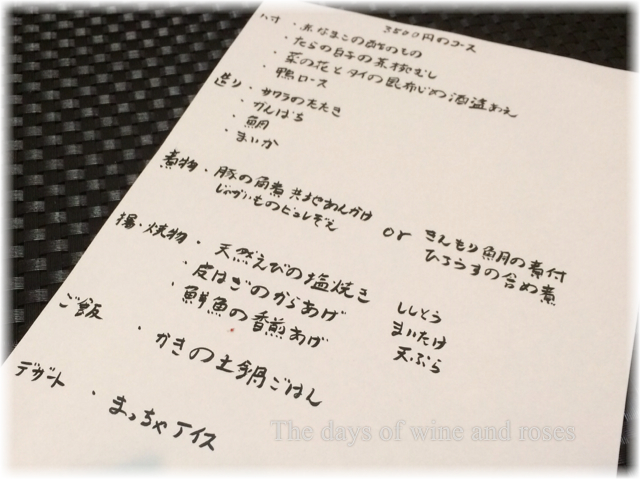 3800円のコース
八寸 ・赤なまこの酢のもの
・たらの白子の茶椀むし
・菜の花とタイの昆布じめ酒盗あえ
・鴨ロース
造り ・サワラのたたき
・かんぱち
・鯛
・まいか
煮物 ・豚の角煮 共地あんかけ
じゃがいものピュレぞえ
or
きんもり鯛の煮付
ひろうすの含め煮
揚・焼物 ・天然えびの塩焼き
・皮はぎのからあげ
・鮮魚の香煎あげ
ししとう
まいたけ
天ぷら
ご飯 ・かきの土鍋ごはん
デザート ・まっちゃアイス
The days of wine and roses